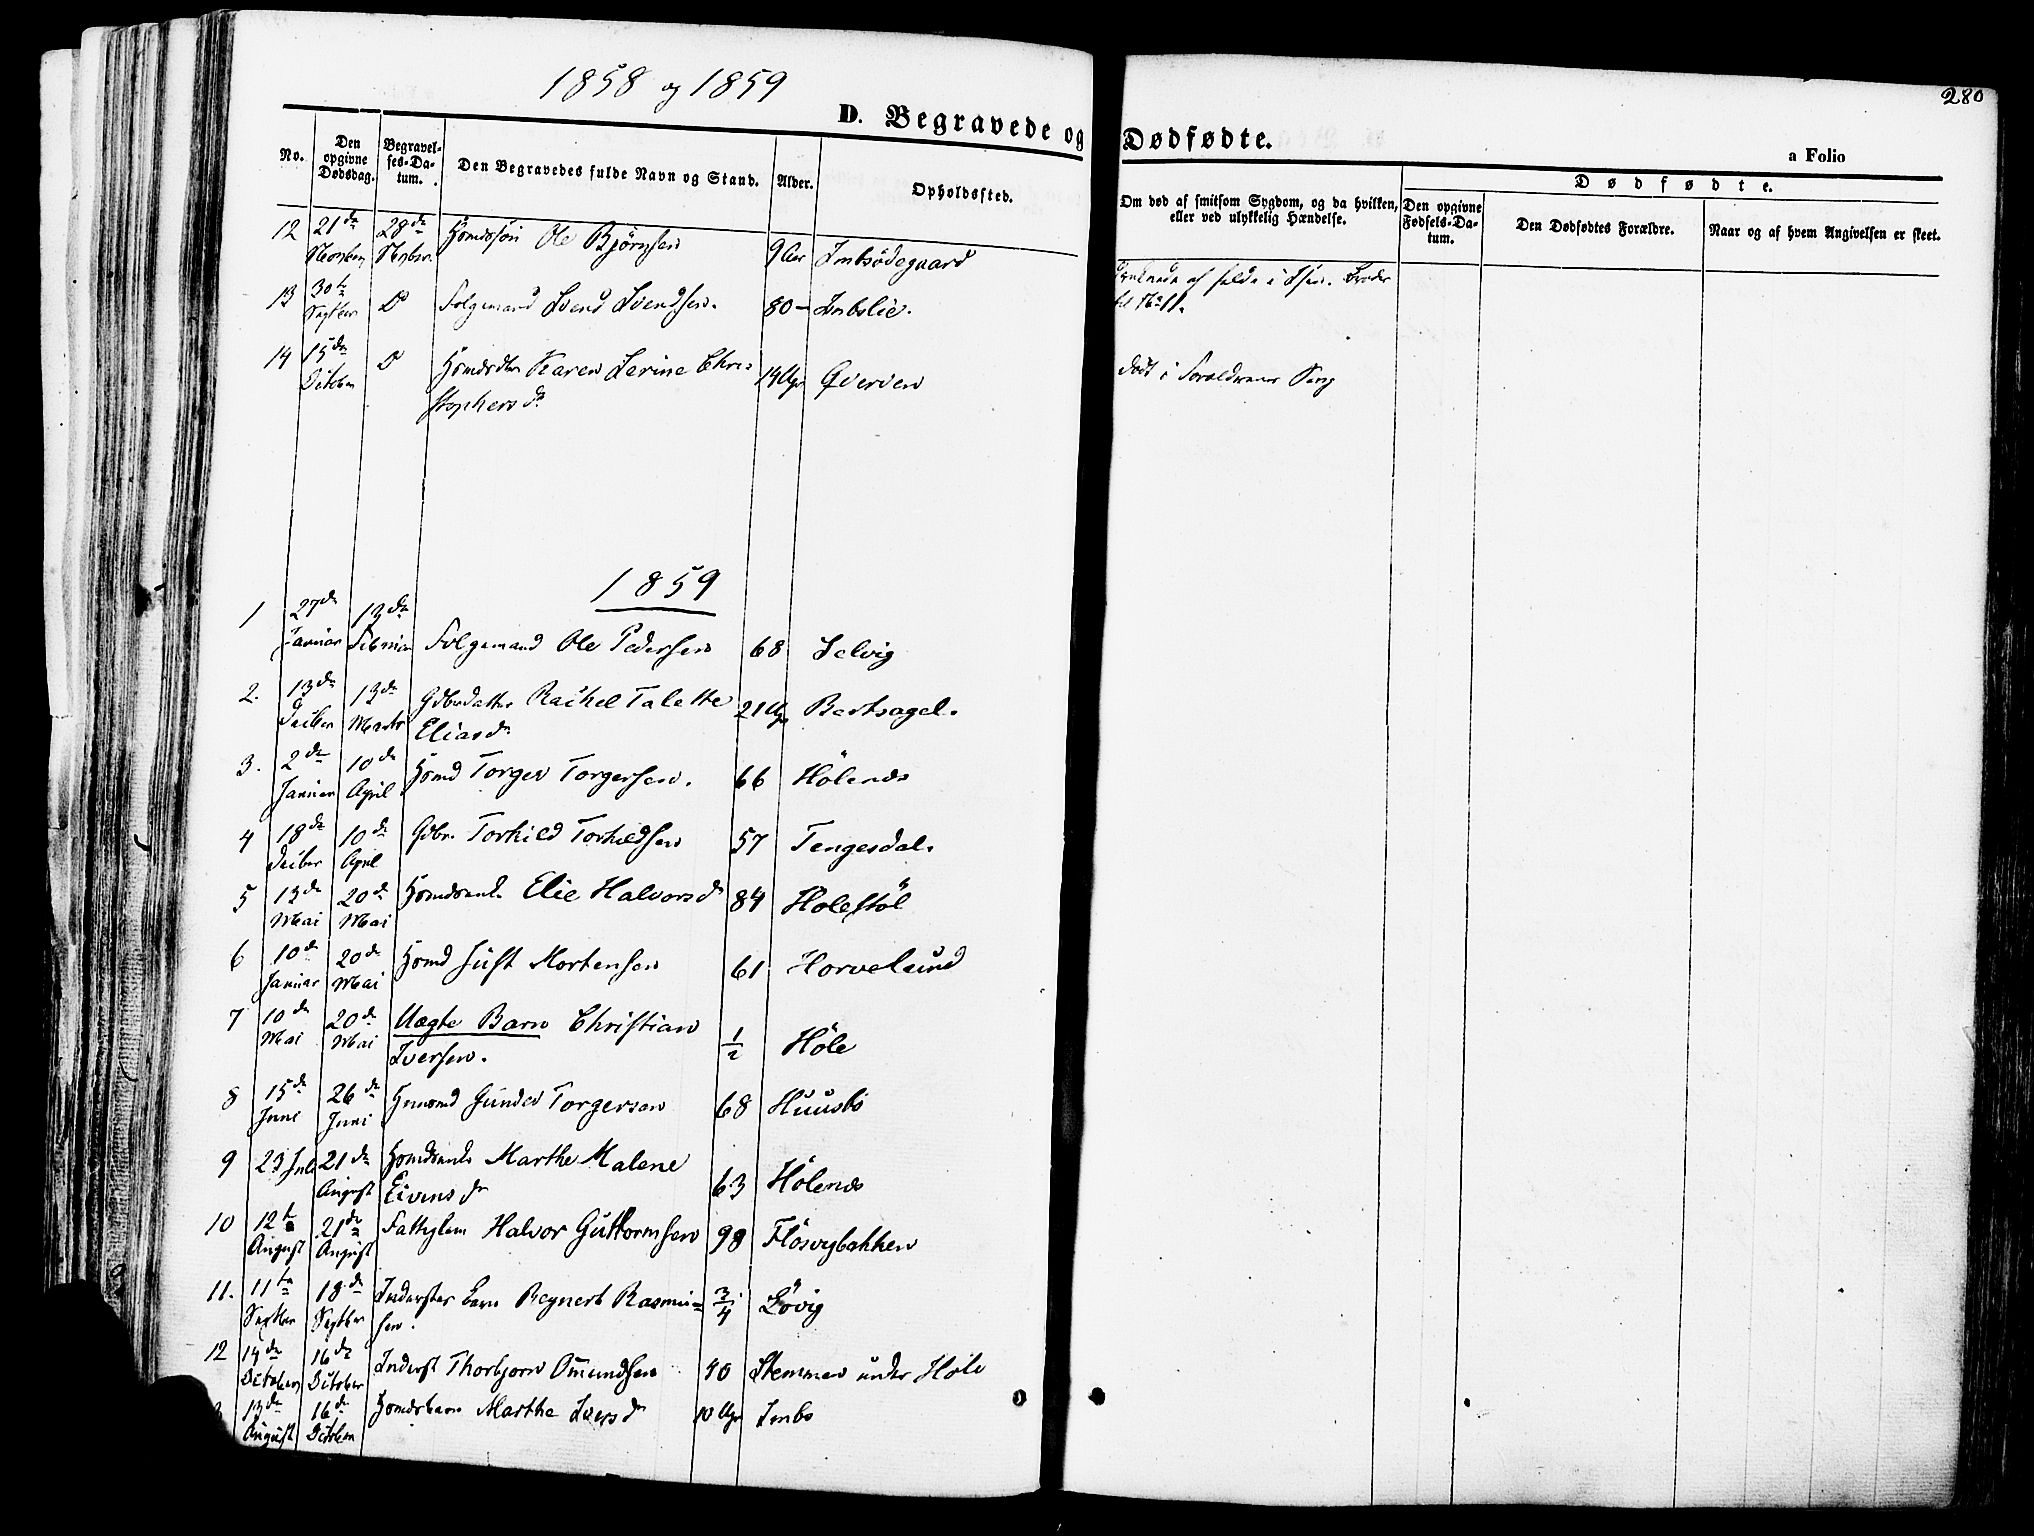 1858 og 1859
280
D. Begravede og Dødfødte.
a Folio
No.
Den opgivne Dødsdag.
Begravelses-Datum.
Den Begravedes fulde Navn og Stand.
Alder.
Opholdssted.
Om død af smitsom Sygdom, og da hvilken, eller ved ulykkelig Hændelse.
Dødfødte.
Den opgivne Fødsels-Datum.
Den Dødfødtes Forældre.
Naar og af hvem Angivelsen er skeet.
12 21de 28de Ole Bjørnsen 9 Imbsødegaard
13 30te Septbr Do Folgemand Svend Svendsen. 80 - Imbslie.
til No 11.
14 15de October Do Karen Serine Chri=
stophersdr 14 Ugr Qverven
Død i Forældrenes Seng
1859
1 27de Januar 13de Februar Folgemand Ole Pedersen 68 Selvig
2. 13de Decbr 13de Marts Gdbrdatter Rachel Talette
Eliasdr 21 Ugr Bertsagel.
3. 2de Januar 10de April Hsmd Torger Torgersen. 66 Hølenes
4 18de Decbr 10de April Gdbr. Torkild Torkildsen 57 Tengesdal.
5 13de Mai 20de Mai Hsmdsenk. Elie Halvorsdr 84 Holestøl
6 10de Januar 20de Mai Hsmd Just Mortensen 61 Horvelund
7 10de Mai 20de Mai Uægte Barn Christian
Iversen. 1/2 Høle
8 15de Juni 26de Juni Gunder Torgersen 68 Huusbø
9 23 Juli 21de August Hsmdsenk. Marthe Malene
Eivinsdr 63 Hølenes
10 12te August 21de August Fattiglem Halvor Guttormsen 98 Fløsvigbakken
11. 11te Septbr 18de Septbr Inderstes Barn Regnert Rasmu=
sen. 3/4 Løvig
12 14de October 16de October Inderst Thorbjørn Ommundsen 40 Stemmen under Høle
13de August 16de October Hsmdsbarn Marthe Iversdr 10 Ugr Imbs